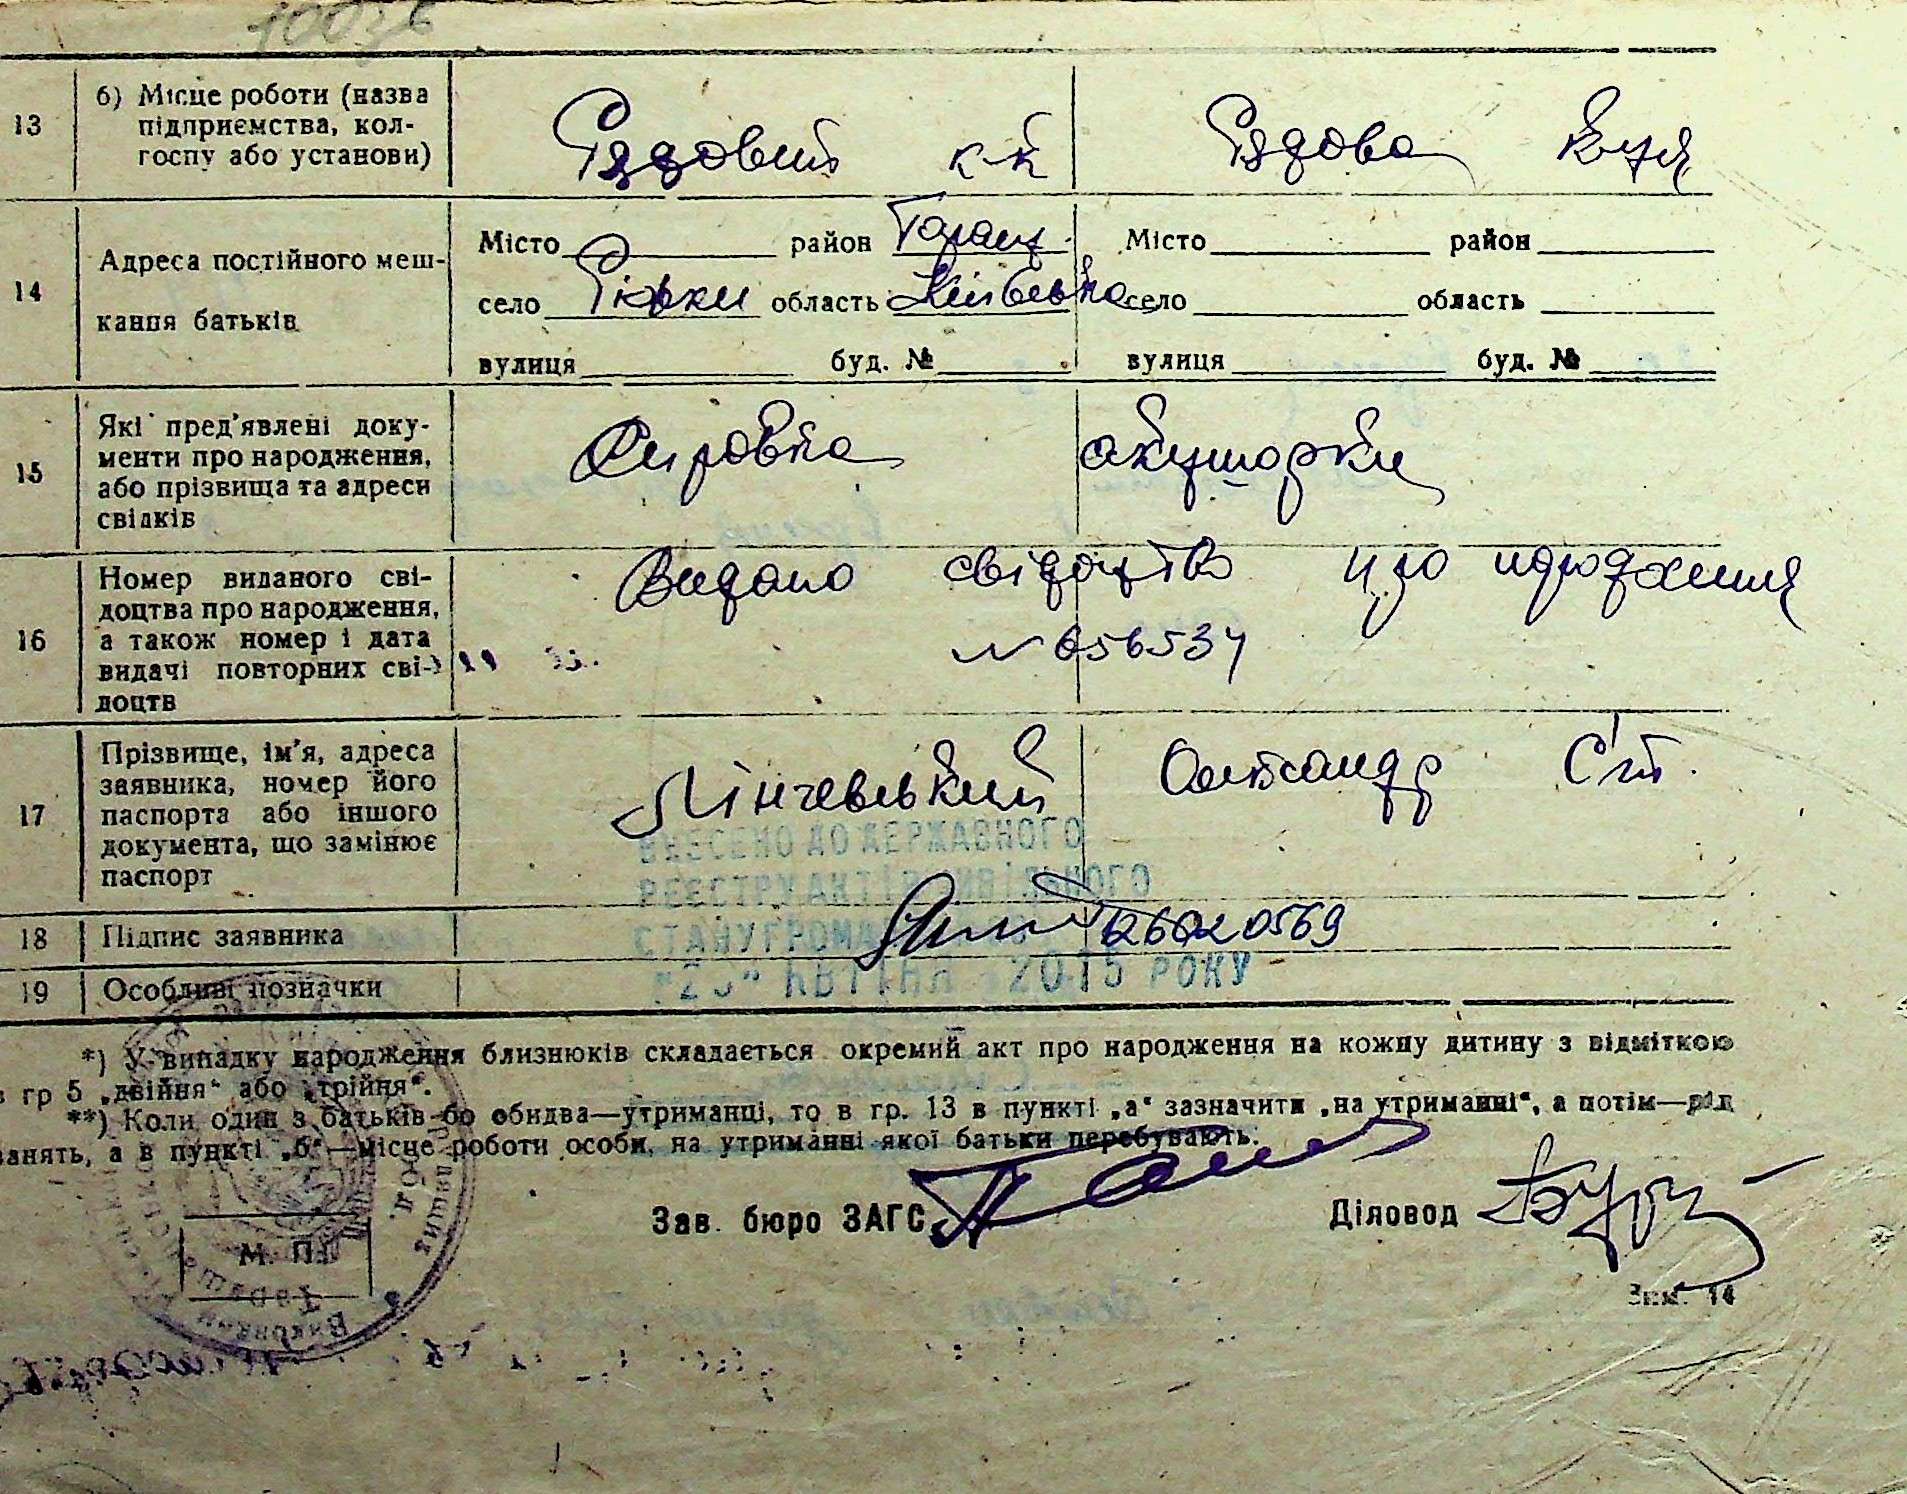 13 б) Місце роботи (назва
підприємства, кол-
госпу або установи)
Рядовий к-к Рядова
14 Адреса постійного меш-
кання батьків
Місто район Таращ. Місто район
село область село область
вулиця буд. № вулиця буд. №
15 Які пред'явлені доку-
менти про народження,
або прізвища та адреси
свідків
акушорки
16 Номер виданого сві-
доцтва про народження,
а також номер і дата
видачі повторних сві-
доцтв
Видано свідоцтво про
N 656534
17 Прізвище, ім'я, адреса
заявника, номер його
паспорта або іншого
документа, що замінює
паспорт
Лінчевський Олександр
ВНЕСЕНО ДО ДЕРЖАВНОГО
РЕЄСТРУ АКТІВ ЦИВІЛЬНОГО
СТАНУ ГРОМАДЯН
18 Підпис заявника
КВІТНЯ 2015 РОКУ
19 Особливі позначки
*) У випадку народження близнюків складається окремий акт про народження на кожну дитину з відміткою
в гр 5 „двійня“ або „трійня“.
**) Коли один з батьків бо обидва—утриманці, то в гр. 13 в пункті „а“ зазначити „на утриманні“, а потім—рід
занять, а в пункті „б“—місце роботи особи, на утриманні якої батьки перебувають.
Зав. бюро ЗАГС Діловод
М. П.
Зам. 14